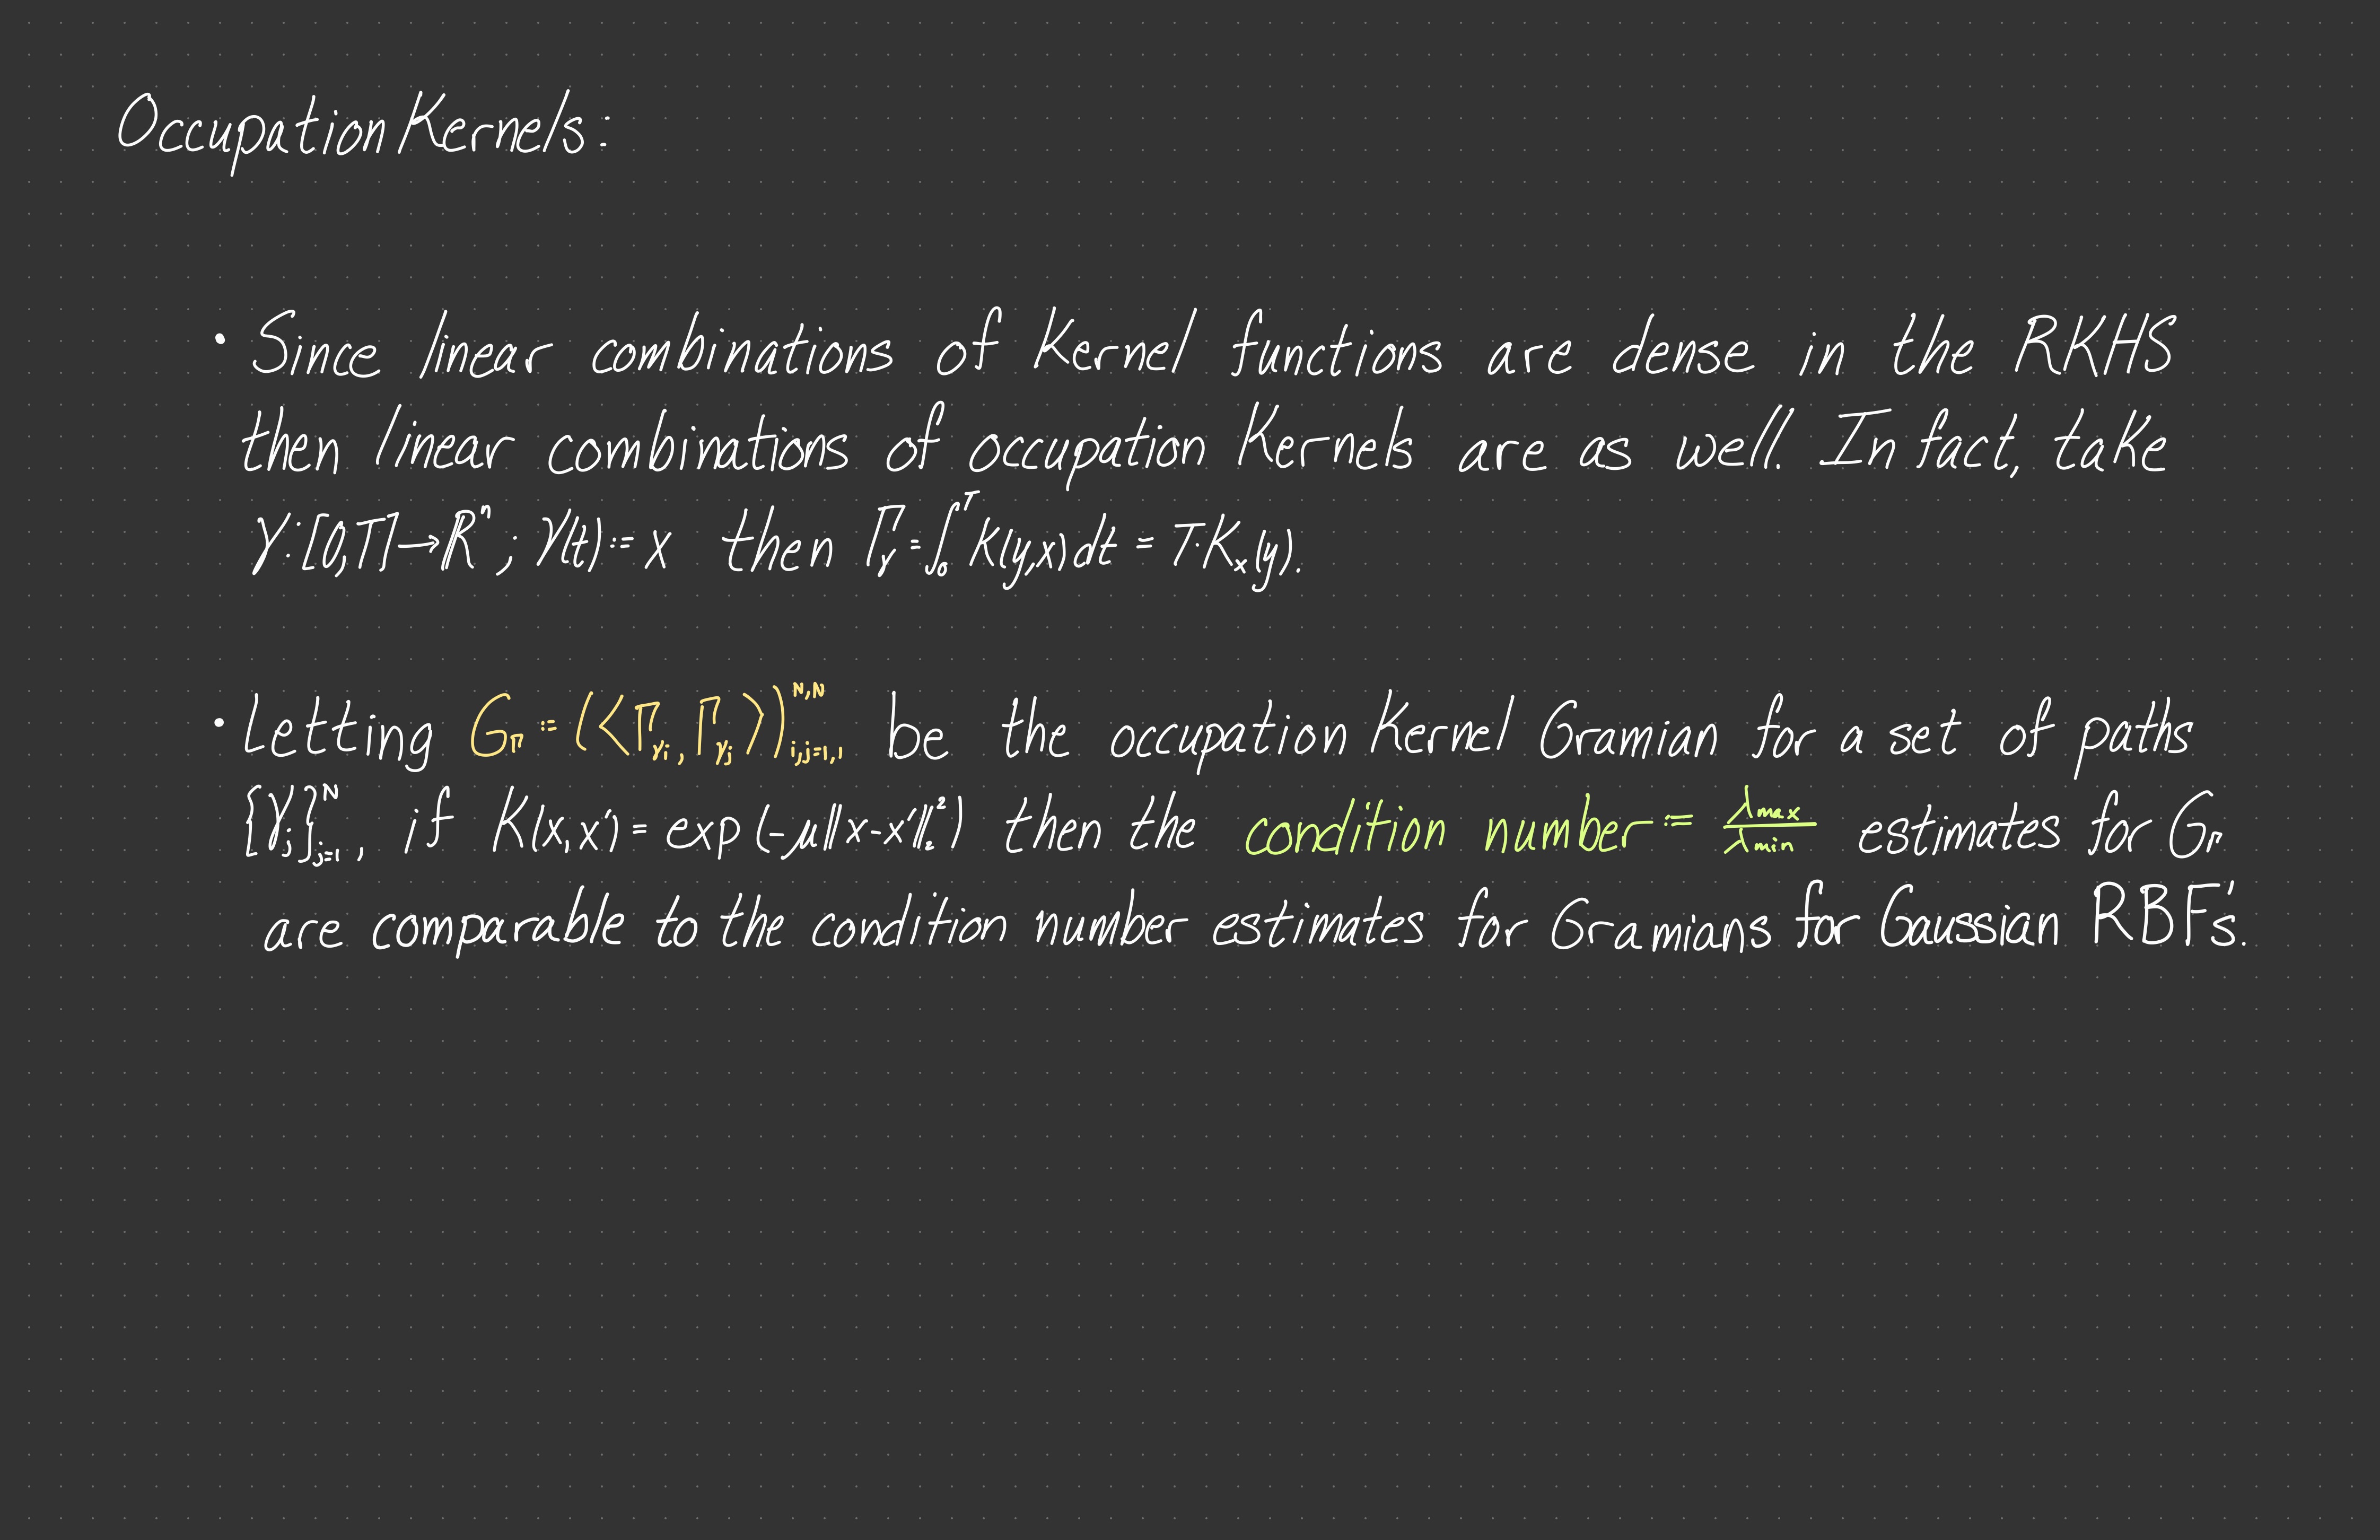 Occupation Kernels:
• Since linear combinations of Kernel functions are dense in the RKHS
then linear combinations of occupation Kernels are as well. In fact, take
γ:[0,T]→ℝⁿ; γ(t):=x then Γ_γ=∫₀ᵀK(y,x)dt = T·Kₓ(y).
• Letting G_Γ:=(⟨Γ_γi, Γ_γj⟩)^{N,N}_{i,j=1,1} be the occupation Kernel Gramian for a set of paths
{γ_j}^N_{j=1}, if K(x,x')=exp(-μ||x-x'||₂²) then the condition number:= λmax/λmin estimates for G_Γ
are comparable to the condition number estimates for Gramians for Gaussian RBF's.